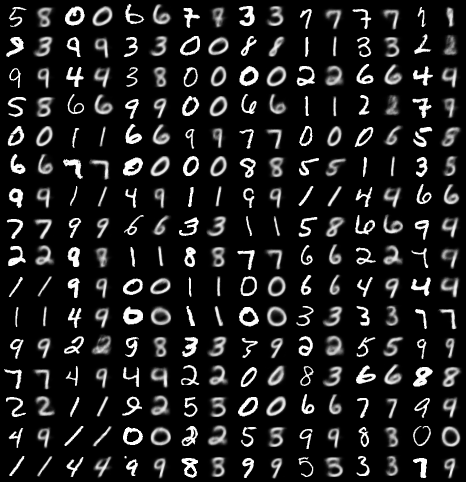 5 8 0 0 6 6 7 7 3 3 7 7 7 7 1 1
8 3 9 9 3 3 0 0 8 8 1 1 3 3 2 2
9 9 4 4 3 8 0 0 0 0 2 2 6 6 4 9
5 8 6 6 9 9 0 0 6 6 1 1 2 2 7 9
0 0 1 1 6 6 9 9 7 7 0 0 0 6 5 8
6 6 7 7 0 0 0 0 8 8 5 5 1 1 3 5
9 9 1 1 4 9 1 1 9 9 1 1 4 4 6 6
7 7 9 9 6 6 3 3 1 1 5 8 6 6 9 4
2 2 9 8 1 1 8 8 7 7 6 6 2 2 7 9
1 1 9 9 0 0 1 1 0 0 6 6 4 9 4 4
1 1 4 9 0 0 1 1 0 0 3 3 3 3 7 7
9 9 2 2 9 8 3 3 3 9 2 2 5 5 9 9
7 7 4 9 4 9 2 2 0 0 8 3 6 6 8 8
2 2 1 1 9 2 5 3 0 0 6 6 7 7 9 9
4 9 1 1 0 0 2 2 5 3 9 9 8 3 0 0
1 1 4 4 9 9 8 8 9 9 5 5 3 3 7 9